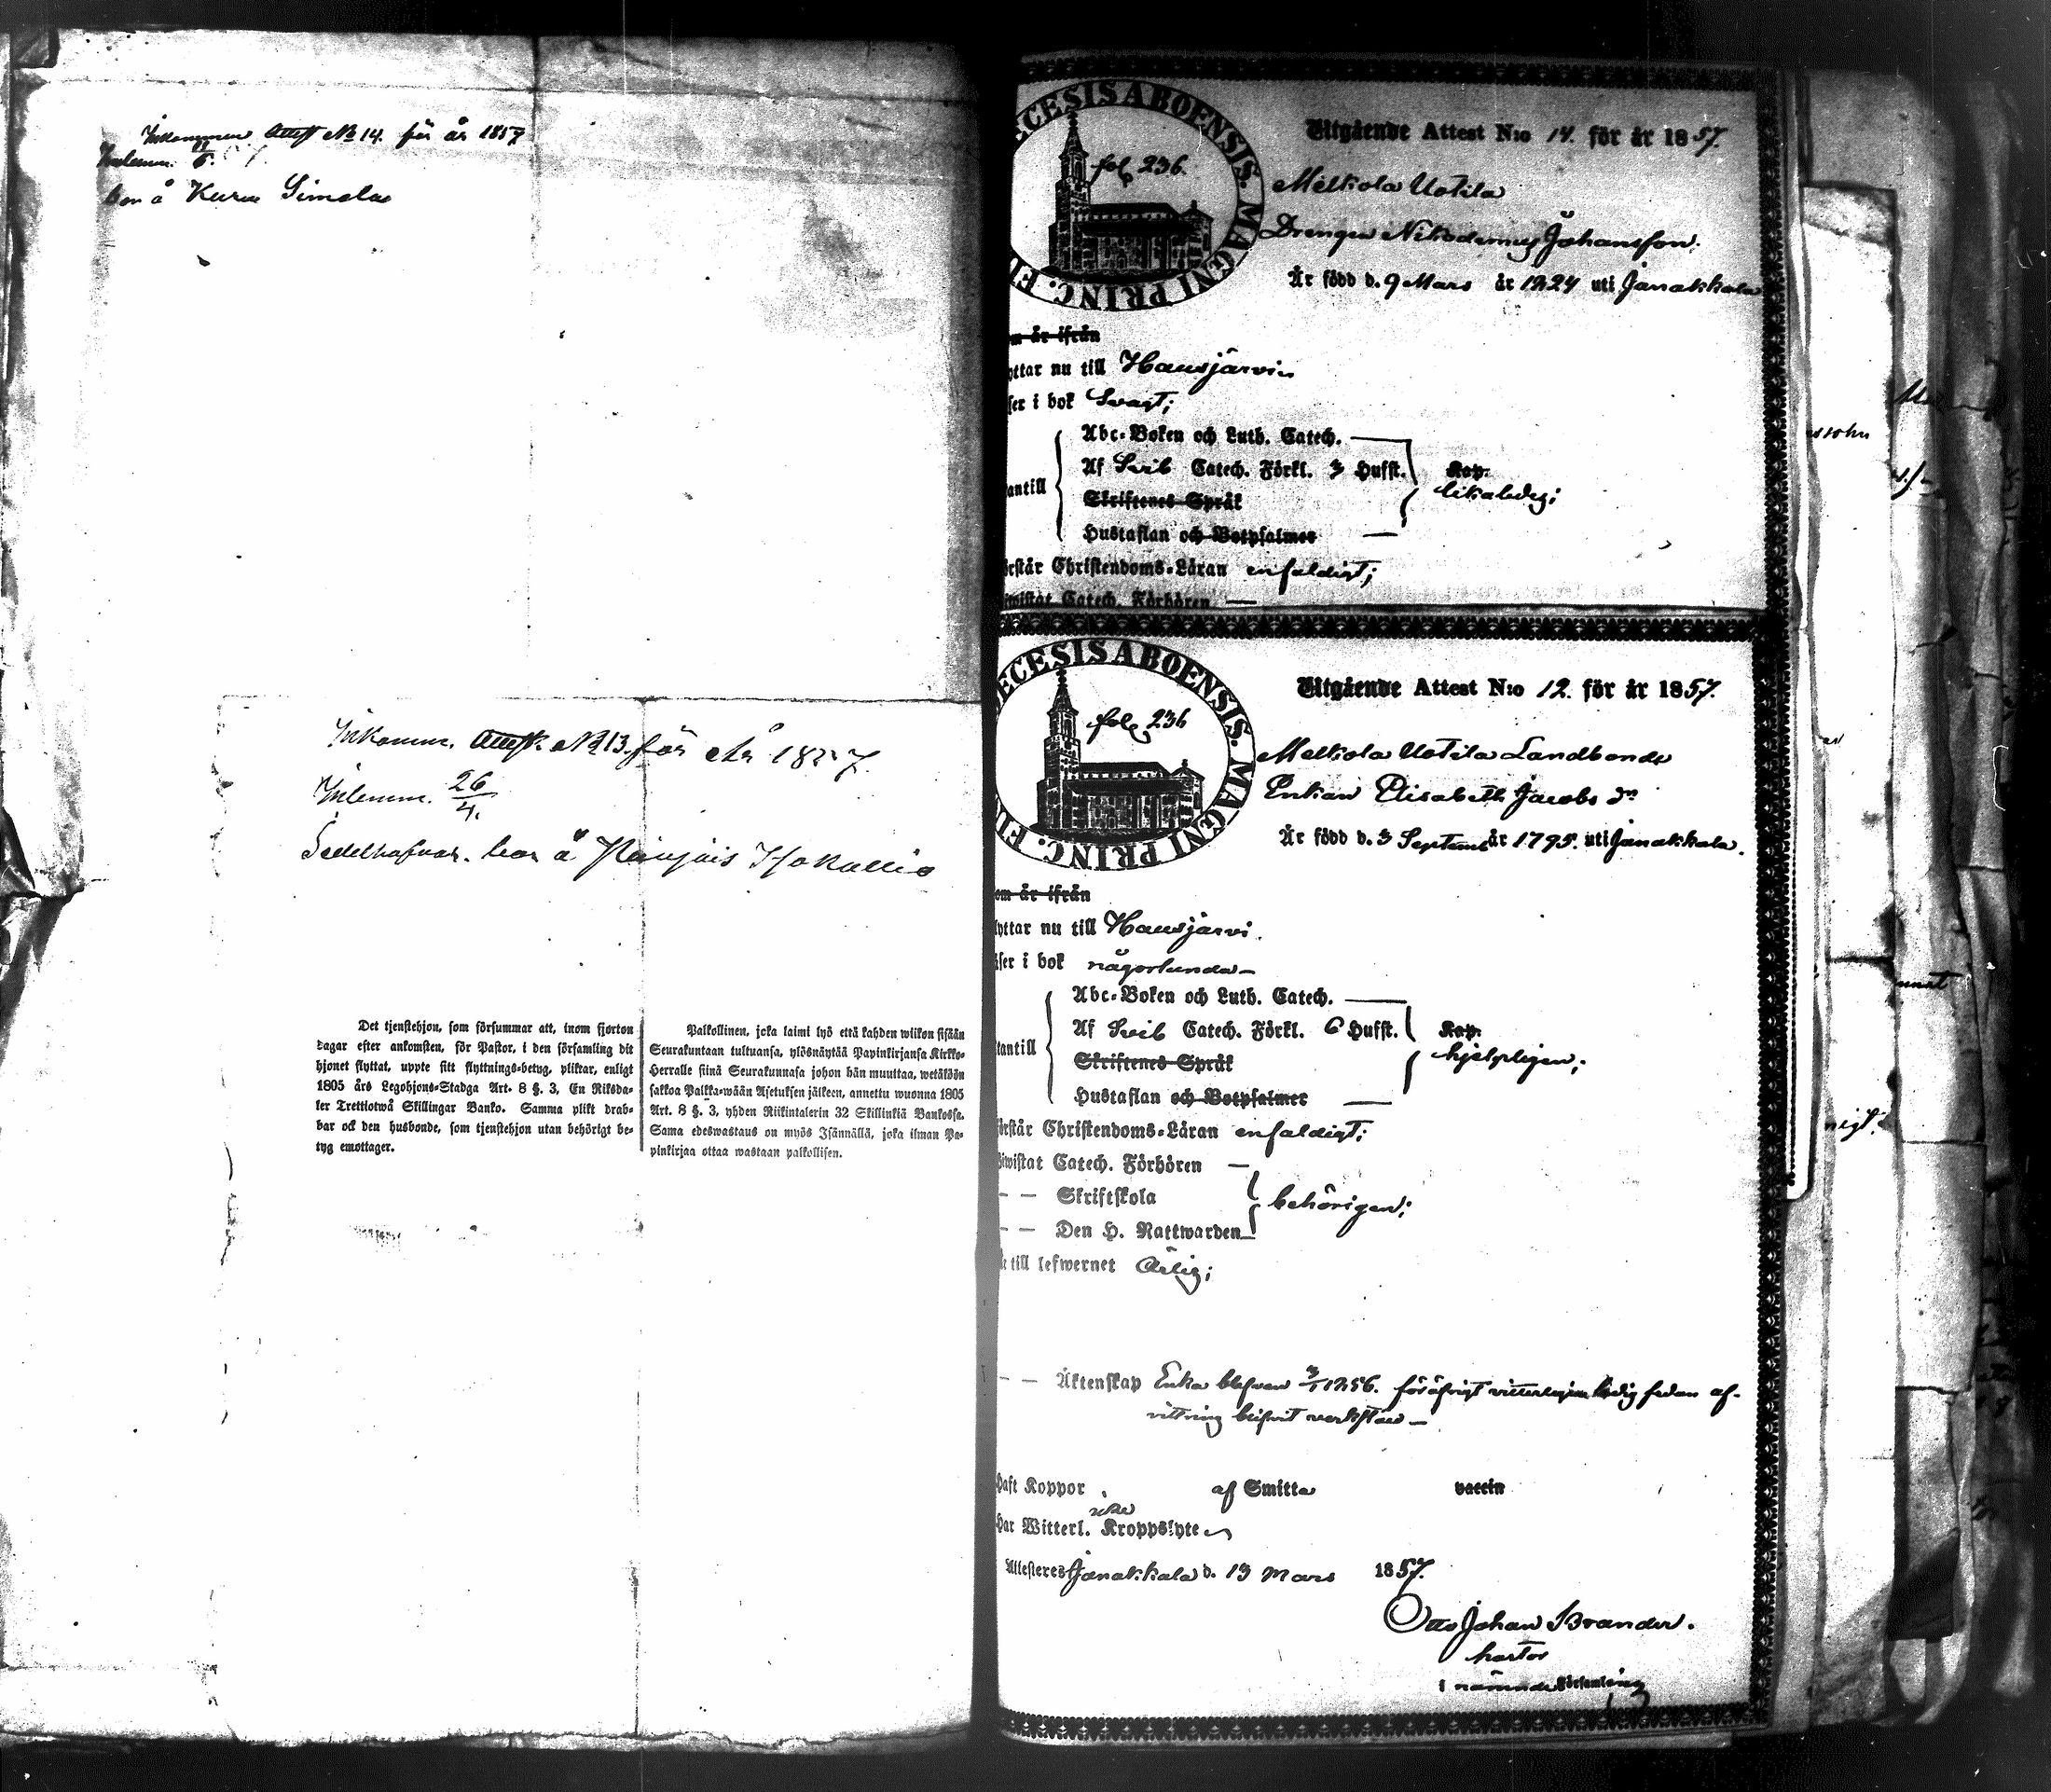 Inkommen Attest No 14. för år 1857
Inlemn. 11/5.
bor å Kuru Simola
Inkomm. Attest. No 13. för År 1857.
Inlemn. 26/4.
Sedelhafvar. bor å
Det tjenstehjon, som försummar att, inom fjorton
dagar efter ankomsten, för Pastor, i den församling dit
hjonet flyttat, uppte sitt flyttnings-betyg, pliktar, enligt
1805 års Legohjons-Stadga Art. 8 §. 3, En Riksda-
ler Trettiotwå Skillingar Banko. Samma plikt drab-
bar ock den husbonde, som tjenstehjon utan behörigt be-
tyg emottager.
Palkollinen, joka laimi lyö että kahden wiikon sisään
Seurakuntaan tultuansa, ylösnäytää Papinkirjansa Kirkko-
Herralle siinä Seurakunnasa johon hän muuttaa, wetäköön
sakkoa Palkka-wään Asetuksen jälkeen, annettu wuonna 1805
Art. 8 §. 3, yhden Riikintalerin 32 Skillinkiä Bankossa.
Sama edeswastaus on myös Isännällä, joka ilman Pa-
pinkirjaa ottaa wastaan palkollisen.
ECESIS ABOENSIS. MAGNI PRINC. FI
fol 236.
Utgående Attest N:o 14. för år 1857.
Melkola Uotila
Drengen Nikodemus Johansson.
Är född d. 9 Mars år 1824 uti Janakkala
m är ifrån
yttar nu till Hausjärvi
ser i bok Svagt;
Abc-Boken och Luth. Catech.
antill Af Svib Catech. Förkl. 3 Hufst. Kap.
likaledes;
Skriftenes Språk
Hustaflan och Botpsalmer
örstår Christendoms-Läran enfaldigt;
wistat Catech. Förhören
ECESIS ABOENSIS. MAGNI PRINC. FI
fol 236
Utgående Attest N:o 12. för år 1857.
Melkola Uotila Landbonde
Enkan Elisabeth Jacobs dr
Är född d. 3 Septemb år 1795. uti Janakkala.
om är ifrån
lyttar nu till Hausjärvi.
äser i bok någorlunda
Abc-Boken och Luth. Catech.
tantill Af Svib Catech. Förkl. 6 Hufst. Kap.
hjelpligen;
Skriftenes Språk
Hustaflan och Botpsalmer
örstår Christendoms-Läran enfaldigt;
iwistat Catech. Förhören
Skriftskola behörigen;
Den H. Nattwarden
till lefwernet Ärlig;
Äktenskap Enka blefven 3/1 1856. föröfrigt vitterligen ledig sedan af-
vittring blifvit verkstäld
Haft Koppor af Smitta vaccin
icke
Har Witterl. Kroppslyte
Attesteres Janakkala d. 13 Mars 1857.
Otto Johan Brander.
Pastor
i nämnde Församling